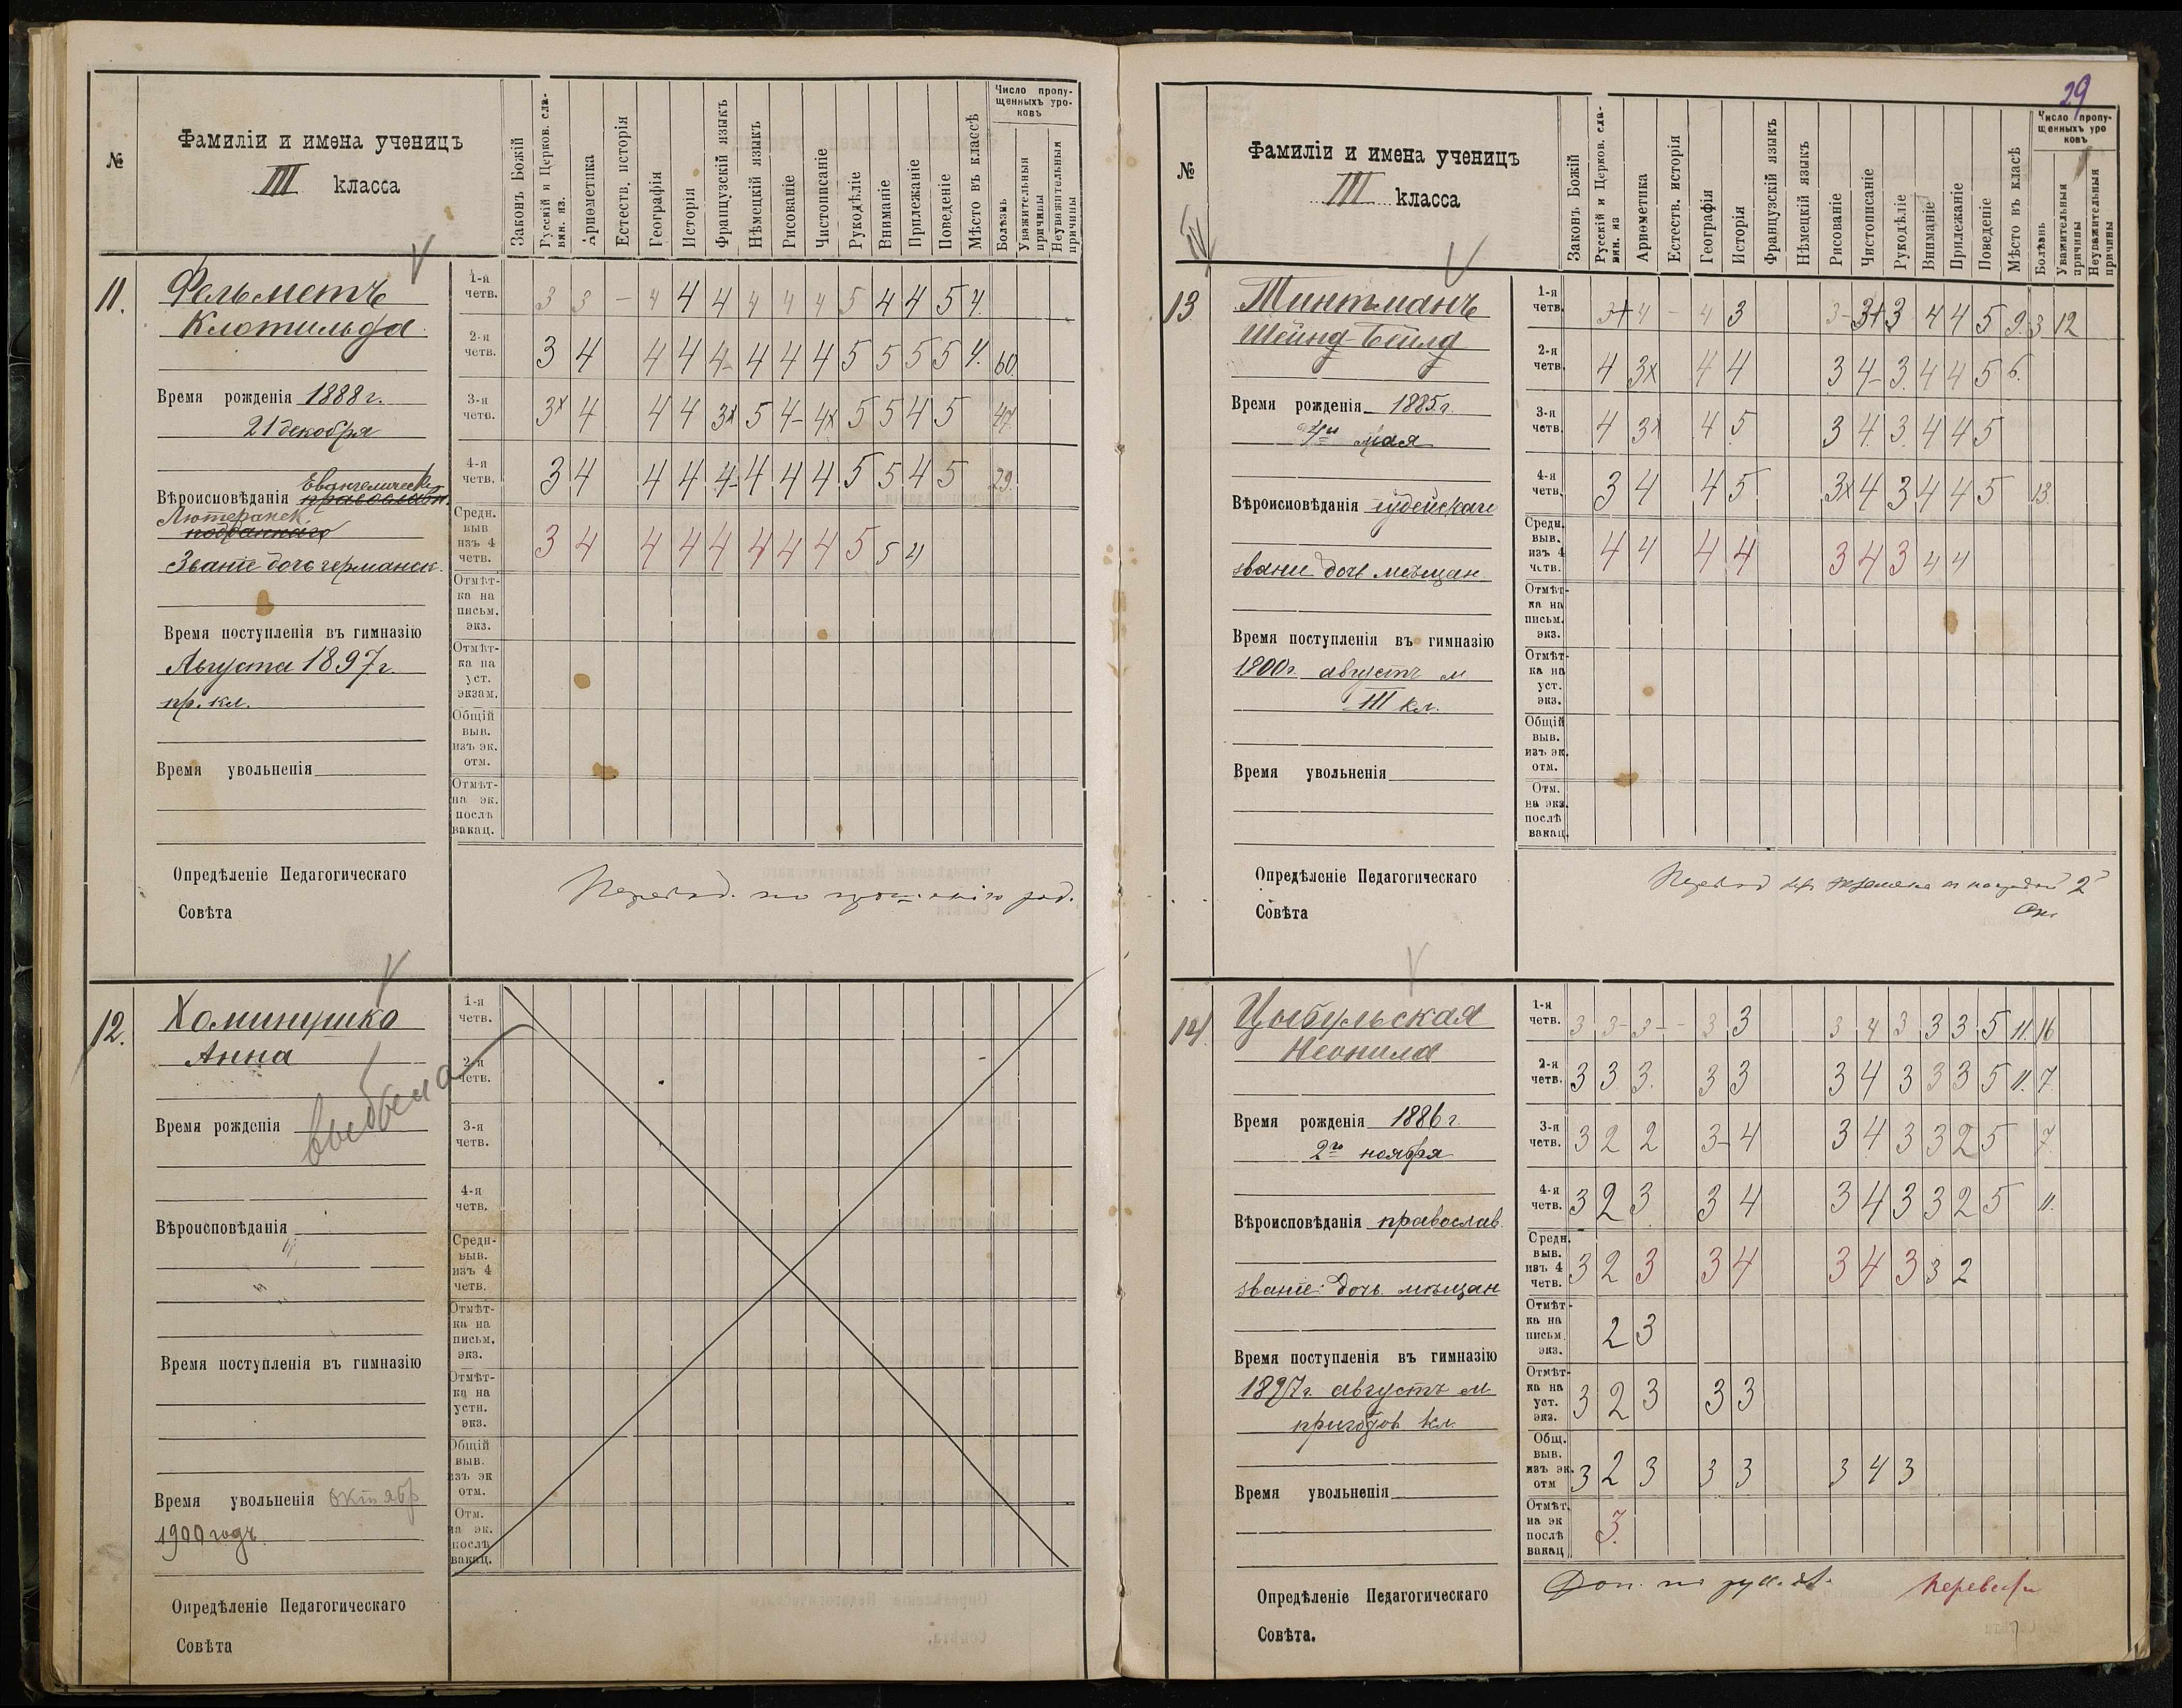 №
Фамиліи и имена ученицъ
III класса
Законъ Божій
Русскій и Церков. сла-
вян. яз.
Ариѳметика
Естеств. исторія
Географія
Исторія
Французскій языкъ
Нѣмецкій языкъ
Рисованіе
Чистописаніе
Рукодѣліе
Вниманіе
Прилежаніе
Поведеніе
Мѣсто въ классѣ
Число пропу-
щенныхъ уро-
ковъ
Болѣзнь
Уважительныя
причины
Неуважительныя
причины
11.
Фельметъ
Клотильда
Время рожденія 1888 г.
21 декобря
Вѣроисповѣданія Евангелическ
Лютеранск.
Званіе дочь германск.
Время поступленія въ гимназію
Августа 1897 г.
пр. кл.
Время увольненія
1-я четв. 3 3 – 4 4 4 4 4 4 5 4 4 5 4.
2-я четв. 3 4 4 4 4- 4 4 4 5 5 5 5 4. 60.
3-я четв. 3x 4 4 4 3x 5 4- 4x 5 5 4 5 47.
4-я четв. 3 4 4 4 4- 4 4 4 5 5 4 5 29.
Средн. выв изъ 4 четв. 3 4 4 4 4 4 4 4 5 5 4
Отмѣт-
ка на
письм.
экз.
Отмѣт-
ка на
уст.
экзам.
Общій
выв.
изъ эк.
отм.
Отмѣт-
на эк.
послѣ
вакац.
Опредѣленіе Педагогическаго
Совѣта
12.
Хоминушко
Анна
выбыла
Время рожденія
Вѣроисповѣданія
Время поступленія въ гимназію
Время увольненія октябр
1900 годъ
1-я
четв.
2-я
четв.
3-я
четв.
4-я
четв.
Средн-
выв.
изъ 4
четв.
Отмѣт-
ка на
письм.
экз.
Отмѣт-
ка на
устн.
экз.
Общій
выв.
изъ эк
отм.
Отм.
на эк.
послѣ
вакац.
Опредѣленіе Педагогическаго
Совѣта
29
№
Фамиліи и имена ученицъ
III класса
Законъ Божій
Русскій и Церков. сла-
вян. яз
Ариѳметика
Естеств. исторія
Географія
Исторія
Французскій языкъ
Нѣмецкій языкъ
Рисованіе
Чистописаніе
Рукодѣліе
Вниманіе
Прилежаніе
Поведеніе
Мѣсто въ класѣ
Число пропу-
щенныхъ уро
ковъ
Болѣзнь
Уважительныя
причины
Неуважительныя
причины
13
Тинтманъ
Шейнд-Бейлд
Время рожденія 1885 г.
мая
Вѣроисповѣданія іудейскаго
званіе дочь мѣщан
Время поступленія въ гимназію
1900 г. августъ м
III кл.
Время увольненія
1-я четв. 3+ 4 – 4 3 3- 3+ 3 4 4 5 9. 3 12
2-я четв. 4 3x 4 4 3 4- 3. 4 4 5 6.
3-я четв. 4 3x 4 5 3 4 3 4 4 5
4-я четв. 3 4 4 5 3x 4 3 4 4 5 13.
Средн. выв. изъ 4 четв. 4 4 4 4 3 4 3 4 4
Отмѣт-
ка на
письм.
экз.
Отмѣт-
ка на
уст.
экз.
Общій
выв.
изъ эк.
отм.
Отм.
на экз.
послѣ
вакац.
Опредѣленіе Педагогическаго
Совѣта
14
Цыбульская
Неонила
Время рожденія 1886 г.
2го ноября
Вѣроисповѣданія православ.
званіе: дочь мѣщан
Время поступленія въ гимназію
1897 г. августъ м
приготов. кл.
Время увольненія
1-я четв. 3 3- 3- – 3 3 3 4 3 3 3 5 11. 16
2-я четв. 3 3 3. 3 3 3 4 3 3 3 5 11. 7.
3-я четв. 3 2 2 3- 4 3 4 3 3 2 5 7.
4-я четв. 3 2 3 3 4 3 4 3 3 2 5 11.
Средн. выв. изъ 4 четв. 3 2 3 3 4 3 4 3 3 2
Отмѣт- ка на письм. экз. 2 3
Отмѣт- ка на уст. экз. 3 2 3 3 3
Общ. выв. изъ эк. отм 3 2 3 3 3 3 4 3
Отмѣт. на эк послѣ вакац 3.
Опредѣленіе Педагогическаго
Совѣта.